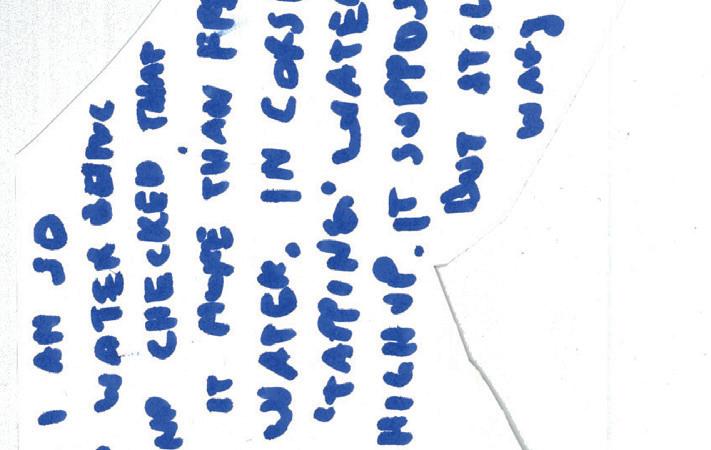 I AM JO
WATER BEING
ND CHECKED THAT
IT MORE THAN
WATER. IN
'TAPPING.' WATE
HIGH UP. IT SUPPO
BUT STIL
WAY)